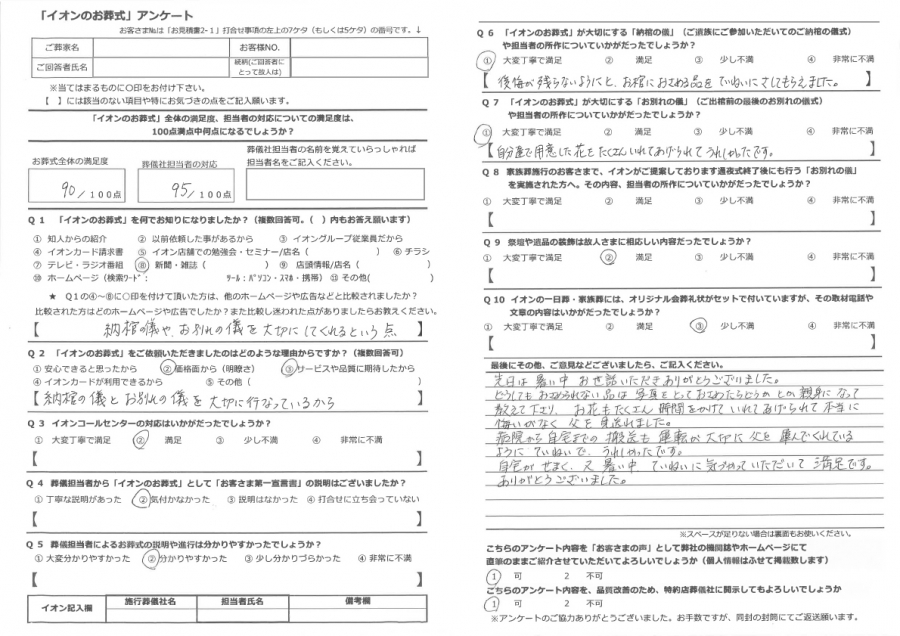 「イオンのお葬式」アンケート
お客さま№は「お見積書2-1」打合せ事項の左上の7ケタ（もしくは5ケタ）の番号です。↓
ご葬家名
お客様NO.
ご回答者氏名
続柄(ご回答者に
とって故人は)
※当てはまるものに○印をお付け下さい。
【　】には該当のない項目や特にお気づきの点をご記入願います。
「イオンのお葬式」全体の満足度、担当者の対応についての満足度は、
100点満点中何点になるでしょうか？
葬儀社担当者の名前を覚えていらっしゃれば
お葬式全体の満足度
葬儀社担当者の対応
担当者名をご記入ください。
90/100点
95/100点
Q 1　「イオンのお葬式」を何でお知りになりましたか？（複数回答可。（　）内もお答え願います）
① 知人からの紹介　② 以前依頼した事があるから　③ イオングループ従業員だから
④ イオンカード請求書　⑤ イオン店舗での勉強会・セミナー/店名（　）⑥ チラシ
⑦ テレビ・ラジオ番組　⑧ 新聞・雑誌（　）⑨ 店頭情報/店名（　）
⑩ ホームページ（検索ﾜｰﾄﾞ：　ﾂｰﾙ：ﾊﾟｿｺﾝ・ｽﾏﾎ・携帯）⑪ その他(　)
★ Q1の④～⑩に○印を付けて頂いた方は、他のホームページや広告などと比較されましたか？
比較された方はどのホームページや広告でしたか？また比較し迷われた点がありましたらお教えください。
【納棺の儀や、お別れの儀を大切にしてくれるという点】
Q 2　「イオンのお葬式」をご依頼いただきましたのはどのような理由からですか？（複数回答可）
① 安心できると思ったから　② 価格面から（明瞭さ）　③ サービスや品質に期待したから
④ イオンカードが利用できるから　⑤ その他（　）
【納棺の儀とお別れの儀を大切に行なっているから】
Q 3　イオンコールセンターの対応はいかがだったでしょうか？
① 大変丁寧で満足　② 満足　③ 少し不満　④ 非常に不満
【　】
Q 4　葬儀担当者から「イオンのお葬式」として「お客さま第一宣言書」の説明はございましたか？
① 丁寧な説明があった　② 気付かなかった　③ 説明はなかった　④ 打合せに立ち会っていない
【　】
Q 5　葬儀担当者によるお葬式の説明や進行は分かりやすかったでしょうか？
① 大変分かりやすかった　② 分かりやすかった　③ 少し分かりづらかった　④ 非常に不満
【　】
イオン記入欄
施行葬儀社名
担当者氏名
備考欄
Q 6　「イオンのお葬式」が大切にする「納棺の儀」（ご遺族にご参加いただいてのご納棺の儀式）
や担当者の所作についていかがだったでしょうか？
① 大変丁寧で満足　② 満足　③ 少し不満　④ 非常に不満
【後悔が残らないようにと、お棺におさめる品をていねいにさしてもらえました。】
Q 7　「イオンのお葬式」が大切にする「お別れの儀」（ご出棺前の最後のお別れの儀式）
や担当者の所作についていかがだったでしょうか？
① 大変丁寧で満足　② 満足　③ 少し不満　④ 非常に不満
【自分達で用意した花をたくさんいれてあげられてうれしかったです。】
Q 8　家族葬施行のお客さまで、イオンがご提案しております通夜式終了後にも行う「お別れの儀」
を実施された方へ。その内容、担当者の所作についていかがだったでしょうか？
① 大変丁寧で満足　② 満足　③ 少し不満　④ 非常に不満
【　】
Q 9　祭壇や遺品の装飾は故人さまに相応しい内容だったでしょうか？
① 大変丁寧で満足　② 満足　③ 少し不満　④ 非常に不満
【　】
Q 10　イオンの一日葬・家族葬には、オリジナル会葬礼状がセットで付いていますが、その取材電話や
文章の内容はいかがだったでしょうか？
① 大変丁寧で満足　② 満足　③ 少し不満　④ 非常に不満
【　】
最後にその他、ご意見などございましたら、ご記入ください。
先日は暑い中お世話いただきありがとうございました。
どうしてもおさめられない品は写真をとっておさめたらどうかとの親身になって
教えて下さり、お花もたくさん時間をかけていれてあげられて本当に
悔いがなく父を見送れました。
病院から自宅までの搬送も運転が大切に父を運んでくれている
ようにていねいで、うれしかったです。
自宅がせまく、又暑い中ていねいに気づかっていただいて満足です。
ありがとうございました。
※スペースが足りない場合は裏面もお使いください。
こちらのアンケート内容を「お客さまの声」として弊社の機関誌やホームページにて
直筆のままご紹介させていただいてよろしいでしょうか（個人情報はふせて掲載致します）
1　可　2　不可
こちらのアンケート内容を、品質改善のため、特約店葬儀社に開示してもよろしいでしょうか
1　可　2　不可
※アンケートのご協力ありがとうございました。お手数ですが、同封の封筒にてご返送願います。